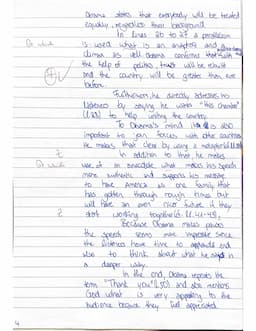 Obama states that everybody will be treated
equally, regardless their background.
In lines 80 to 87 a parallelism
is used what is an anaphora and
as well. Obama confirms that with
the help of politics, trust will be rebuilt
and the country will be greater than ever
before.
Furthermore, he directly adresses his
listeners by saying he wants "this chamber"
to help uniting the country.
To Obama's mind it is also
important to join forces with other countries.
He makes that clear by using a metaphor
In addition to that, he makes
use of an anecdote what makes his speech
more authentic and supports his message
to have America as one family that
has gotten through rough times but
will have an even nicer future if they
start working together
Because Obama makes pauses
the speech seems more impressive since
the listeners have time to applaude and
also to think about what he said in
a deeper way.
In the end, Obama repeats the
term "Thank you" and also mentions
God what is very appealing to the
audience because they feel appreciated
4